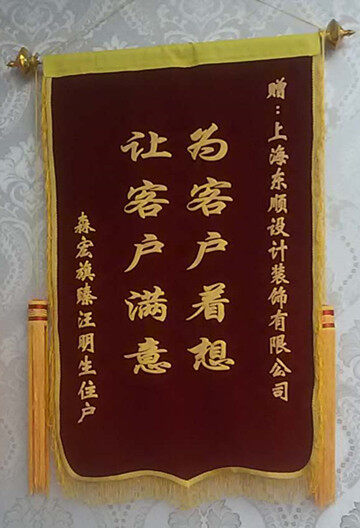 赠：上海东顺设计装饰有限公司
为客户着想
让客户满意
森宏旗臻汪明生住户